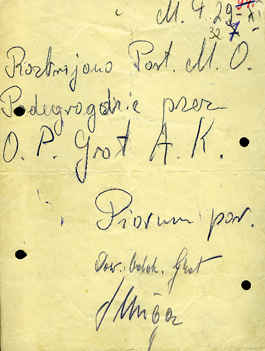 M. 4. 29
32 7
Rozbrojono Post. M. O.
Podegrodzie przez
O. P. Grot A. K.
Piorun por.
Dow. Oddz. Grot